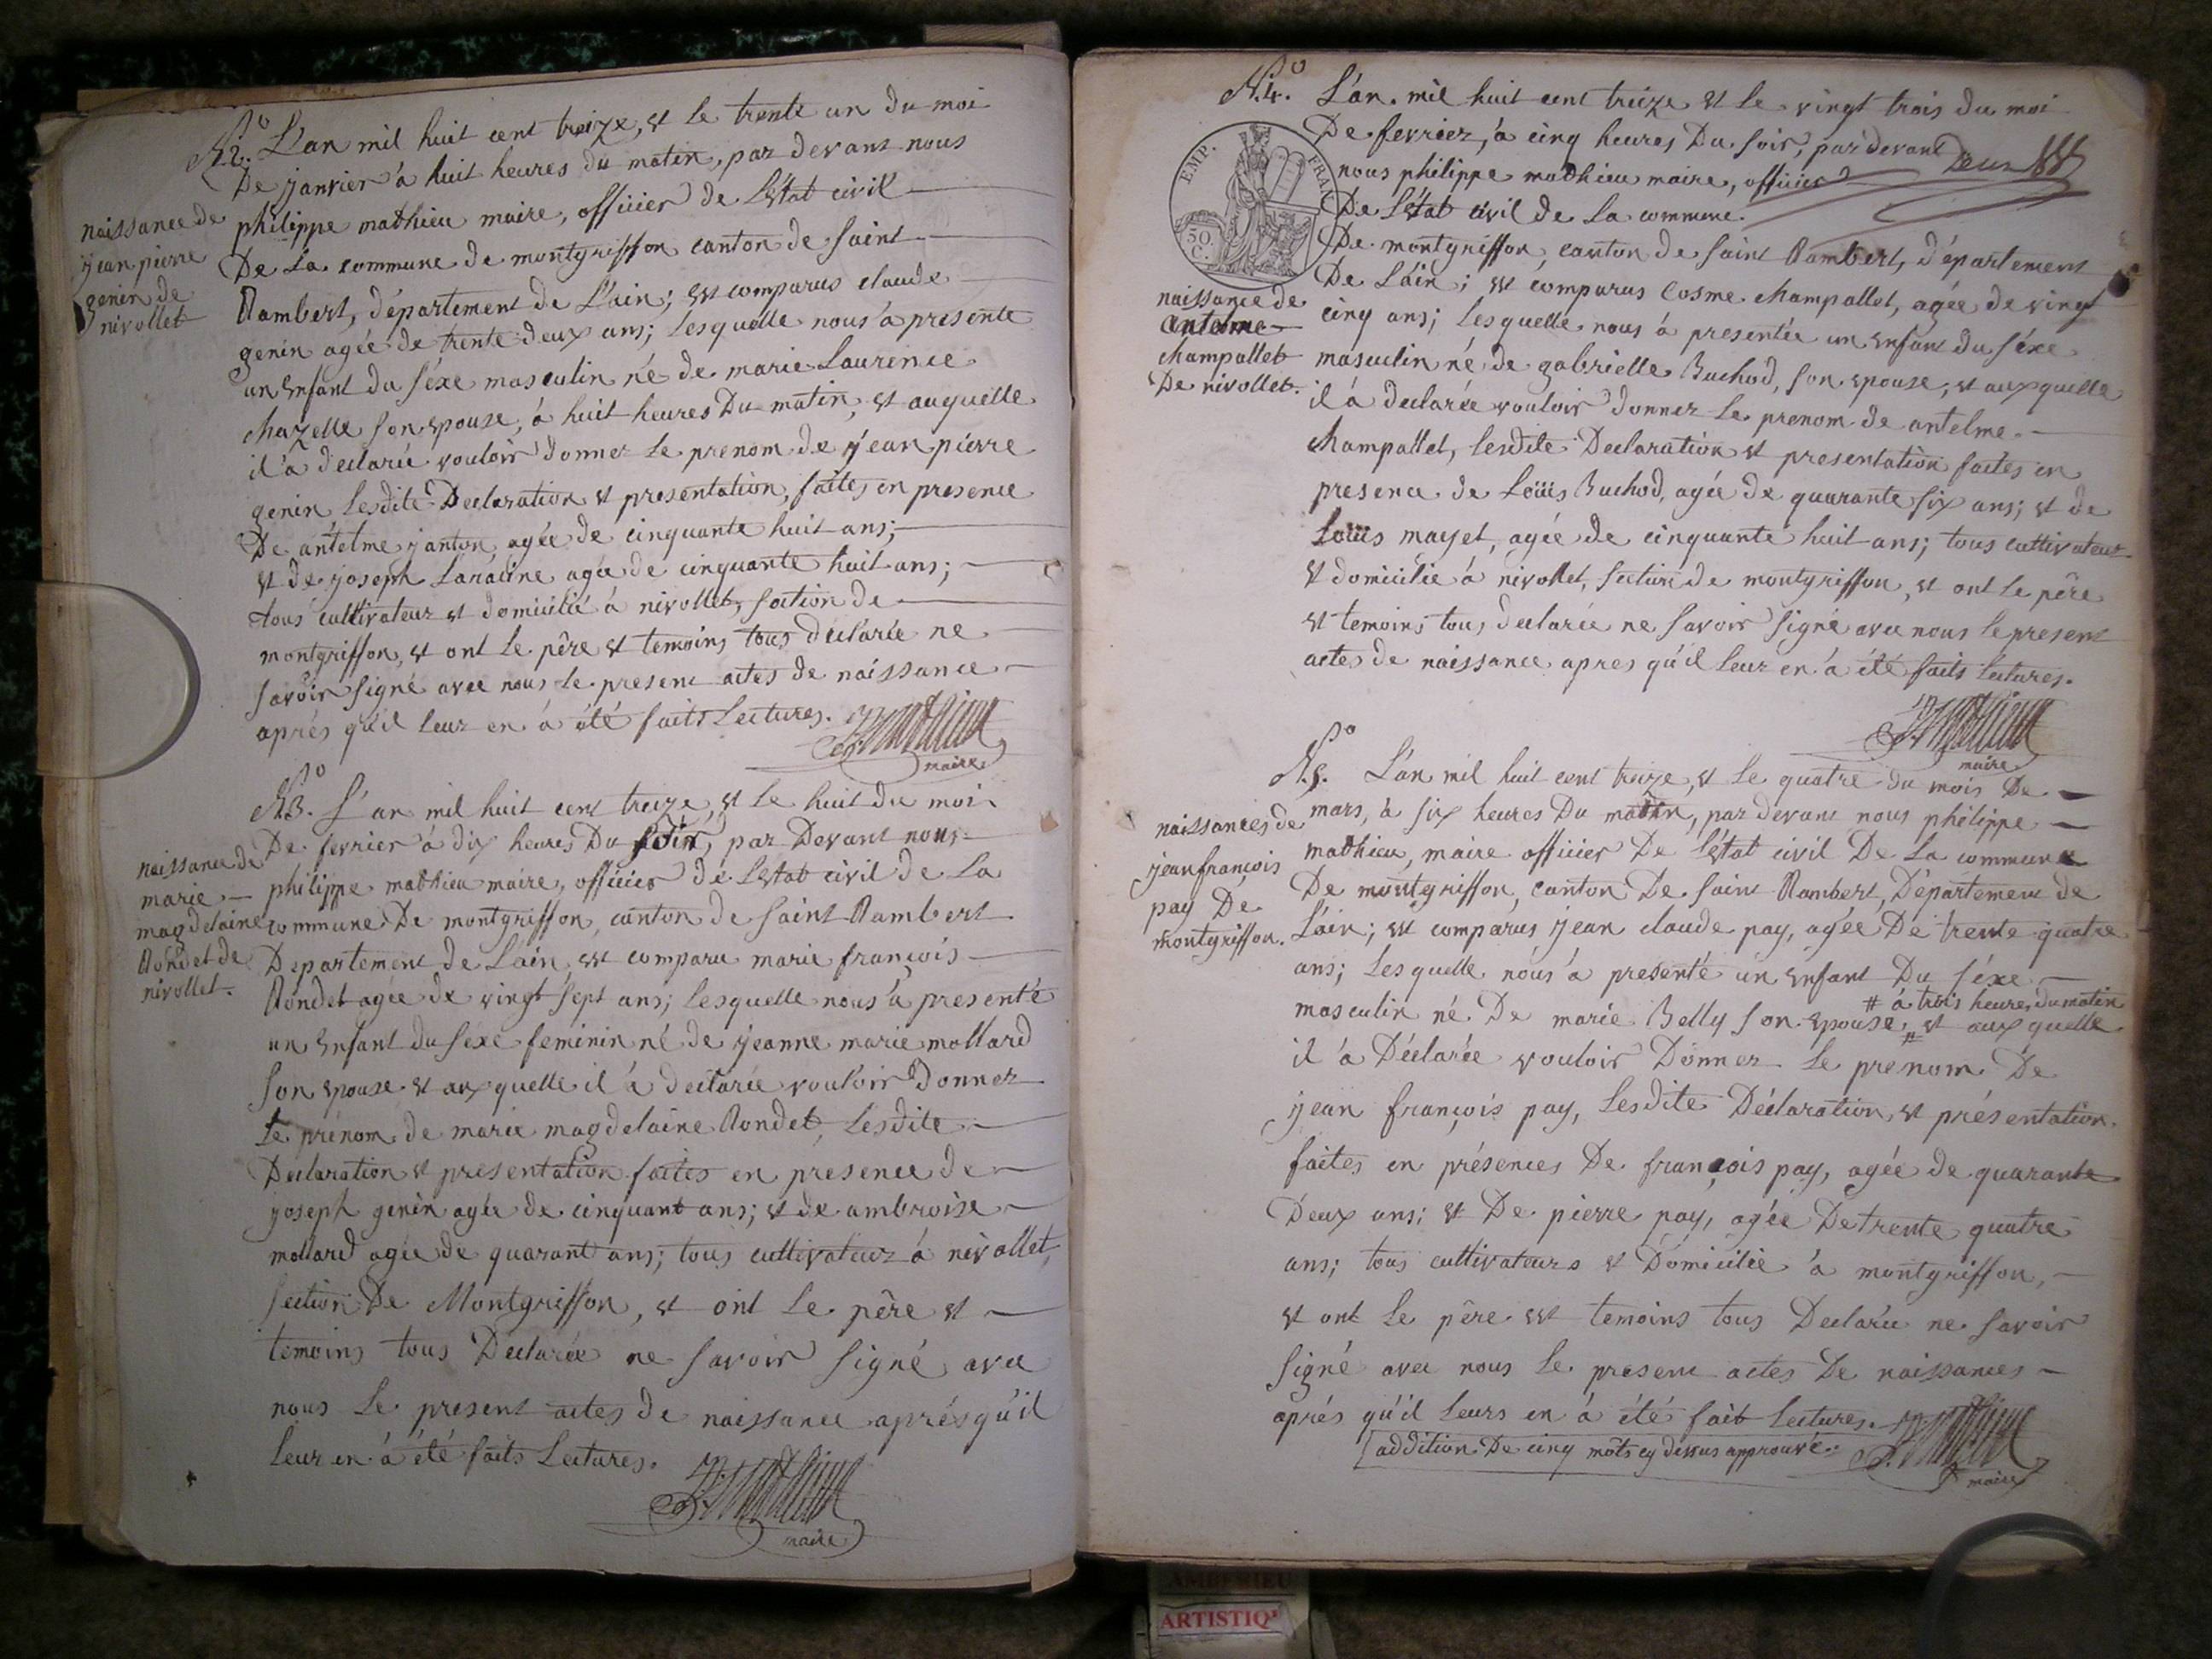 N.º 2. L'an mil huit cent treize, et le trente un du moi
De janvier à huit heures du matin, par devant nous
philippe mathieu maire, officier de L'état civil
De La commune de montgriffon canton de saint
Rambert, département de L'ain; est comparus claude
genin agée de trente deux ans; lesquelle nous à presente
un enfant du séxe masculin né de marie Laurence
chazelle son epouse, à huit heures Du matin, et auquelle
il à declarée vouloir donner le prenom de jean pierre
genin lesdite Declaration et presentation, faites en presence
De antelme janton, agée de cinquante huit ans;
et de joseph Laracine agée de cinquante huit ans;
tous cultivateur et domicilié à nivollet, section de
montgriffon, et ont le père et temoins tous declarée ne
savoir signé avec nous le present actes de naissance
après qu'il leur en à été faits Lectures.
maire
naissance de
jean pierre
genin de
nivollet
N.º 3. L'an mil huit cent treize, et le huit du moi
De fevrier à dix heures Du soir, par Devant nous
philippe mathieu maire, officier de L'état civil de La
commune De montgriffon, canton de saint Rambert
Departement de Lain est comparu marie françois
Rondet agée de vingt sept ans; lesquelle nous à presenté
un enfant du sexe feminin né de jeanne marie mollard
son epouse et auxquelle il à declarée vouloir Donner
le prénom de marie magdelaine Rondet, Lesdite
Declaration et presentation faites en presence de
joseph genin agée de cinquant ans; et de ambroise
mollard agée de quarant ans; tous cultivateur à nivollet,
section De Montgriffon, et ont le père et
temoins tous Declarée ne savoir signé avec
nous Le present actes de naissance après qu'il
leur en à été faits Lectures.
maire
naissance de
marie
magdelaine
Rondet de
nivollet.
N.º 4. L'an mil huit cent treize et le vingt trois du moi
De fevrier, à cinq heures Du soir, par devant
nous philippe mathieu maire, officier
De L'état civil de La commune
De montgriffon, canton de saint Rambert, département
De L'ain; est comparus Cosme champallet, agée de vingt
cinq ans; lesquelle nous à presentée un enfant du séxe
masculin né de gabrielle Buchod, son epouse, et auxquelle
il à declarée vouloir donner le prenom de antelme
champallet, lesdite Declaration et presentation faites en
presence de Loüis Buchod, agée de quarante six ans; et de
Loüis mayet, agée de cinquante huit ans; tous cultivateur
et domicilié à nivollet, section de montgriffon, et ont le père
et temoins tous declarée ne savoir signé avec nous le present
actes de naissance apres qu'il leur en à été faits lectures.
maire
Deux
EMP. FRA
50 C.
naissance de
antelme
champallet
De nivollet.
N.º 5. L'an mil huit cent treize, et le quatre du mois De
mars, à six heures Du matin, par devant nous philippe
mathieu, maire officier De L'état civil De La commune
De montgriffon, canton De saint Rambert, Département de
L'ain; est comparus jean claude pay, agée De trente quatre
ans; lesquelle nous à presenté un enfant Du séxe
# à trois heures du matin
masculin né De marie Belly son epouse, # et auxquelle
il à Déclarée vouloir Donner le prenom De
jean françois pay, Lesdite Déclaration, et présentation
faites en présences De françois pay, agée de quarante
Deux ans; et De pierre pay, agée De trente quatre
ans; tous cultivateurs et Domicilié à montgriffon,
et ont le père est temoins tous Declarée ne savoir
signé avec nous le present actes De naissances
après qu'il leurs en à été fait lectures.
addition De cinq mots cy dessus approuvé.
maire
naissances de
jean françois
pay De
montgriffon.
AMBERIEU
ARTISTIQ